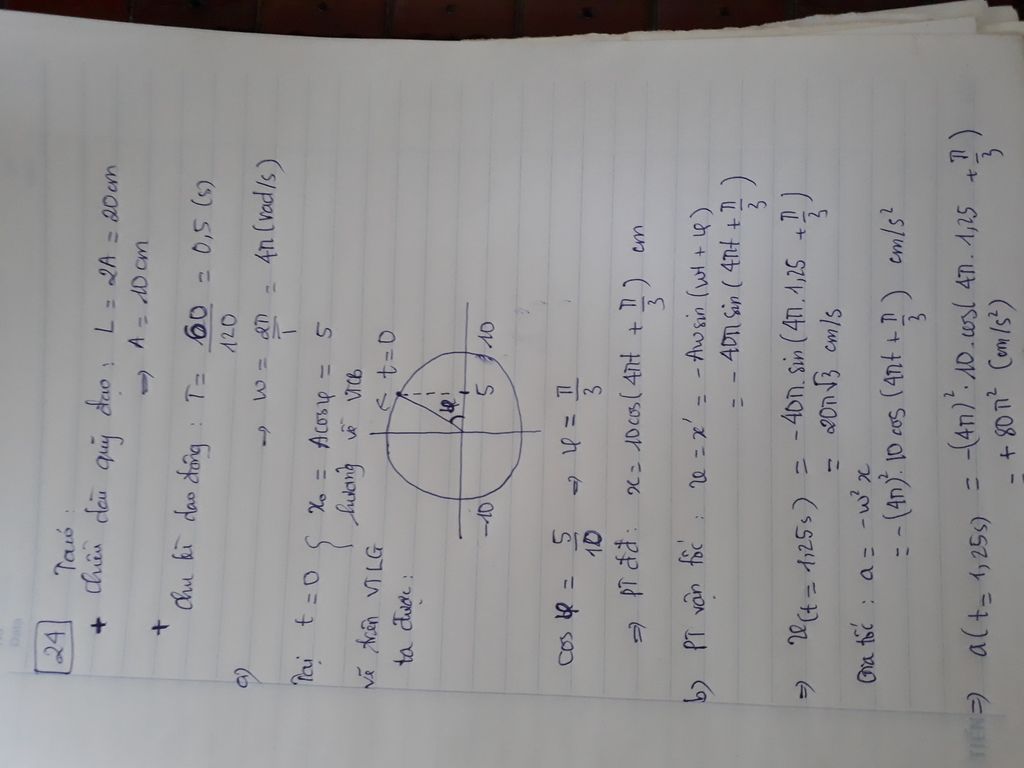 24
Ta có :
+ chiều dài quỹ đạo : L = 2A = 20cm
⇒ A = 10cm
+
chu kì dao động : T = 60/120 = 0,5 (s)
→ w = 2π/T = 4π (rad/s)
a)
Tại t = 0 { x₀ = Acosφ = 5
hướng về VTCB
vẽ trên VTLG
ta được :
t = 0
φ
-10 5 10
cos φ = 5/10 ⇒ φ = π/3
⇒ PT dđ : x = 10cos(4πt + π/3) cm
b) PT vận tốc : v = x' = -Aw sin(wt + φ)
= -40π sin(4πt + π/3)
⇒ v(t = 1,25s) = -40π.sin(4π.1,25 + π/3)
= 20π√3 cm/s
Gia tốc : a = -w²x
= -(4π)².10 cos(4πt + π/3) cm/s²
⇒ a(t = 1,25s) = -(4π)².10.cos(4π.1,25 + π/3)
= +80π² (cm/s²)
TIẾN